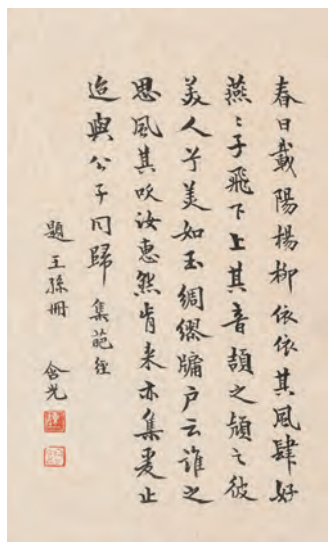 春日載陽揚柳依依其風肆好
燕〻子飛下上其音頡之頏之彼
美人兮美如玉綢繆牖户云誰之
思風其吹汝惠然肯来亦集爰止
迨與公子同歸 集葩經
題王孫冊 含光